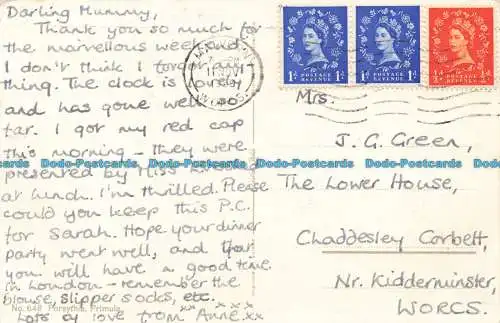 Darling Mummy,
Thank you so much for
the marvellous weekend
I don't think I forgot any
thing. The clock is lovely
and has gone well so
far. I got my red cap
this morning - they were
presented by Miss
at lunch. I'm thrilled. Please
could you keep this P.C.
for Sarah. Hope your dinner
party went well, and that
you will have a good time
in London - remember the
blouse, slipper socks, etc.
No. 648 Forsythia, Primula
Lots of love from Anne xx
xx x x x
1D POSTAGE REVENUE 1D
1D POSTAGE REVENUE 1D
½D POSTAGE REVENUE ½D
Mrs.
J. G. Green,
The Lower House,
Chaddesley Corbett,
Nr. Kidderminster,
WORCS.
Dodo-Postcards Dodo-Postcards Dodo-Postcards Dodo-Postcards Dodo-Postcards